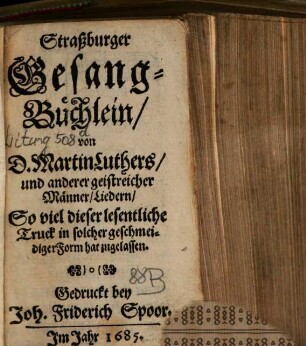 Straßburger
Gesang-
Büchlein/
Liturg 508 d
von
D. Martin Luthers/
und anderer geistreicher
Männer/ Liedern/
So viel dieser lesentliche
Truck in solcher geschmei-
diger Form hat zugelassen.
88B
Gedruckt bey
Joh. Friderich Spoor.
Im Jahr 1685.